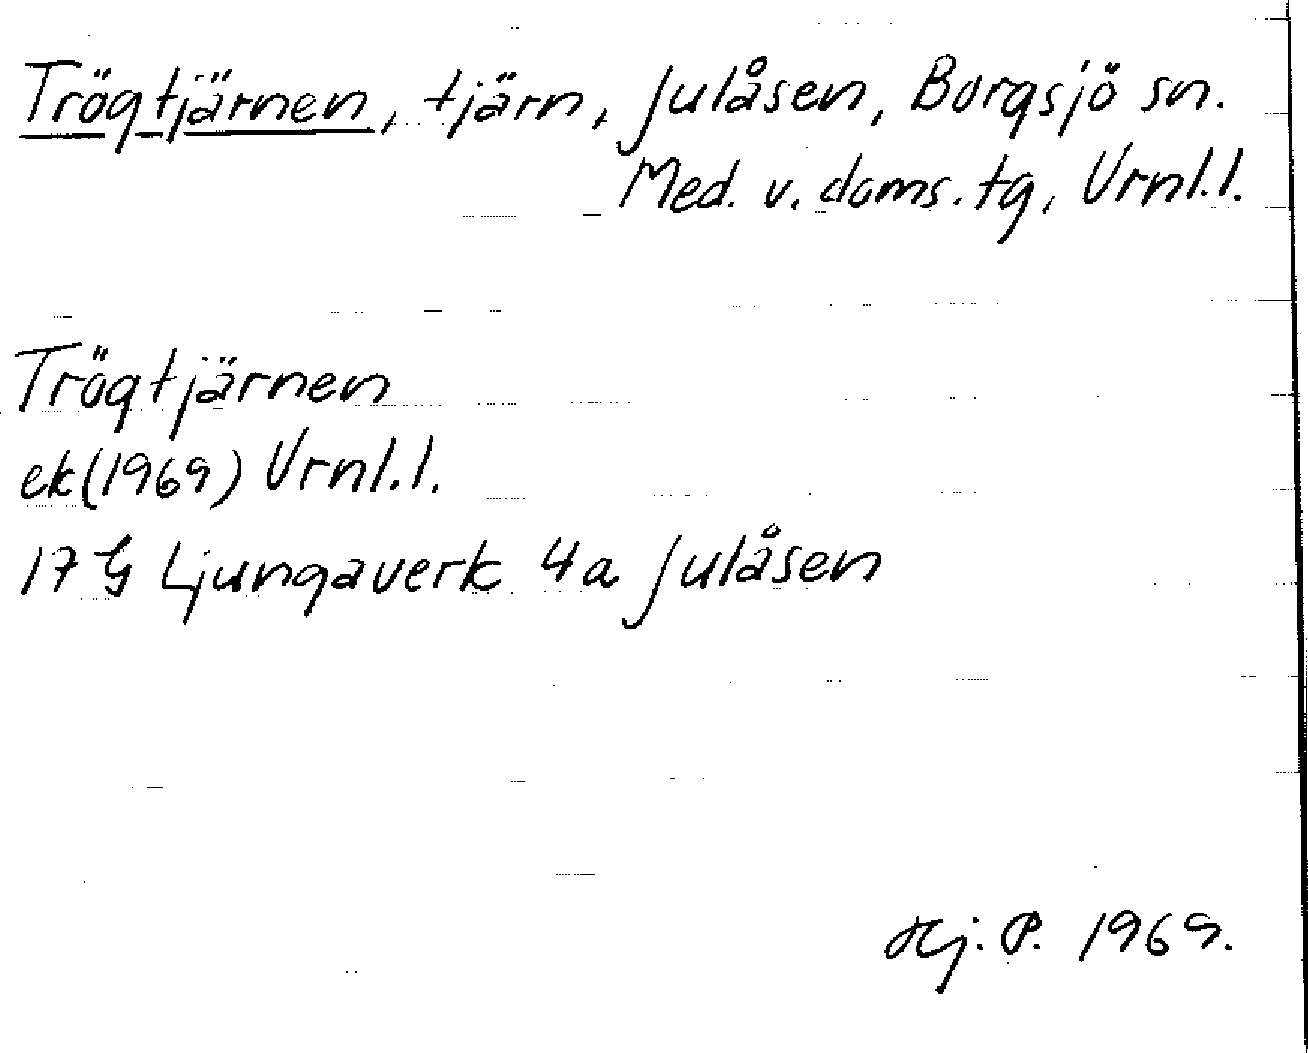 Trögtjärnen, tjärn, Julåsen, Borgsjö sn.
Med. v. doms. tg, Vrnl.l.
Trögtjärnen
ek(1969) Vrnl.l.
17 G Ljungaverk 4a Julåsen
Hj. P. 1969.